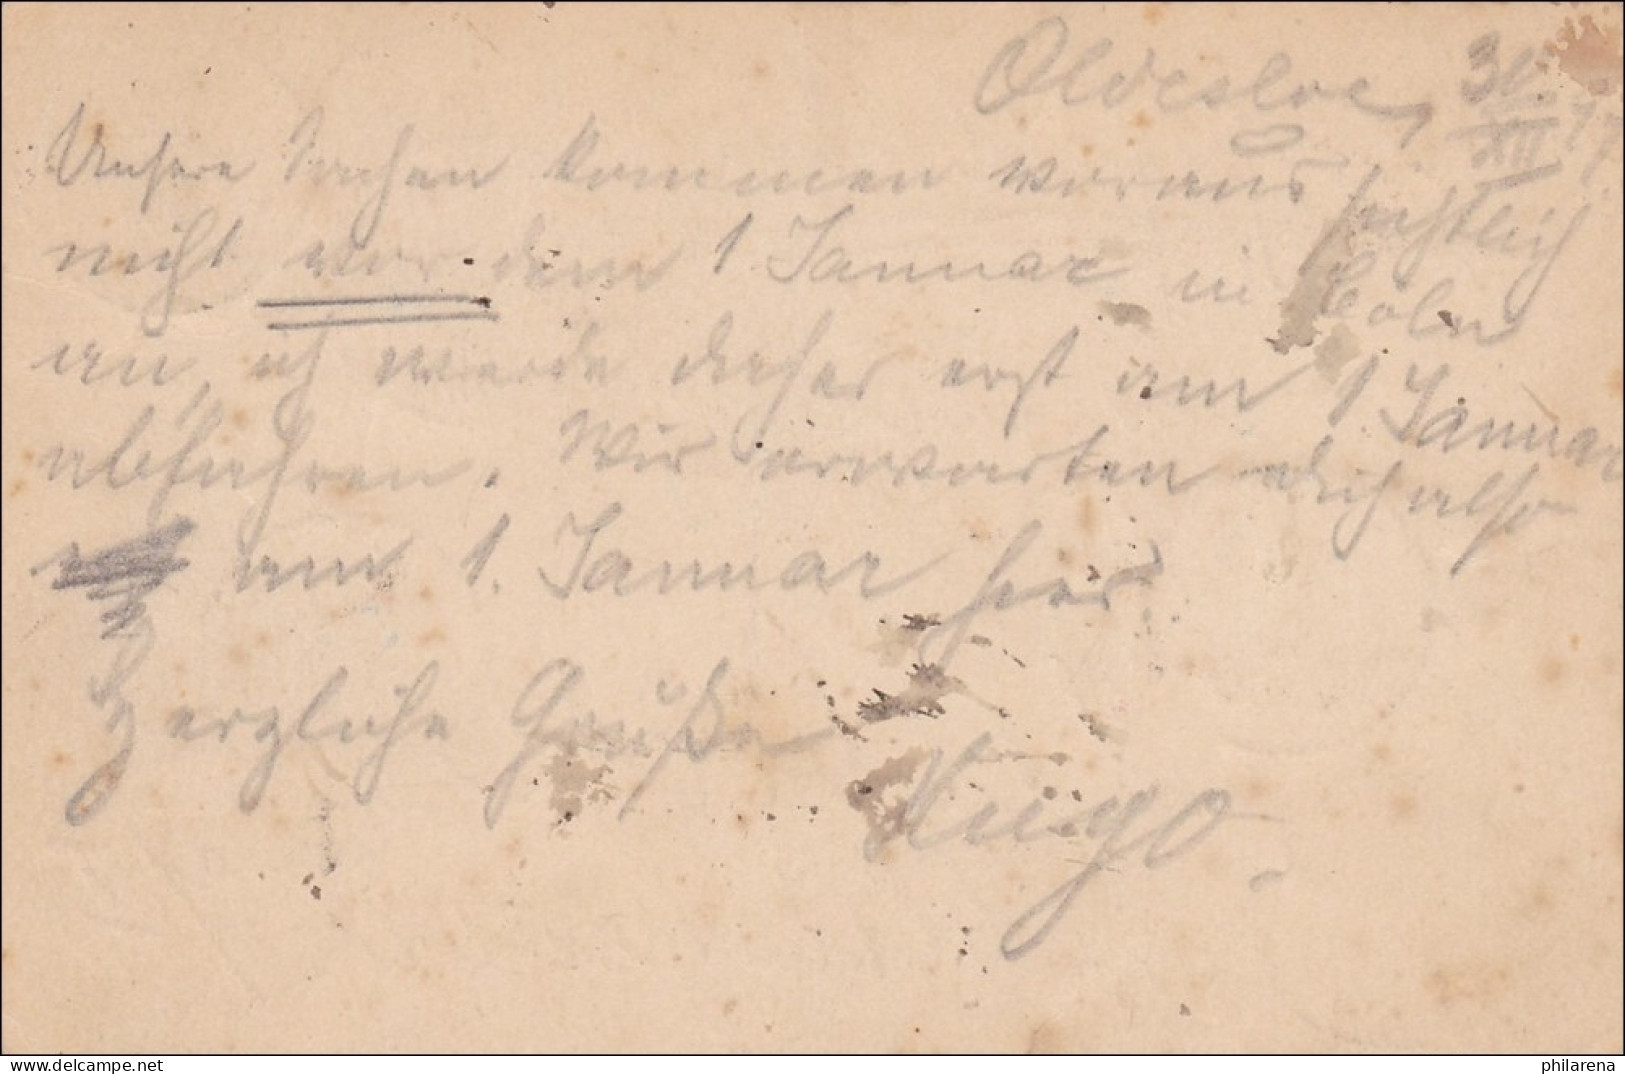 Oldesloe, 30./XII
Unsere Sachen kommen voraussichtlich
nicht vor dem 1 Januar in Cöln
an, ich werde daher erst am 1 Januar
abfahren. Wir erwarten dich also
am 1. Januar hier.
Herzliche Grüße
Hugo.
www.delcampe.net
philarena